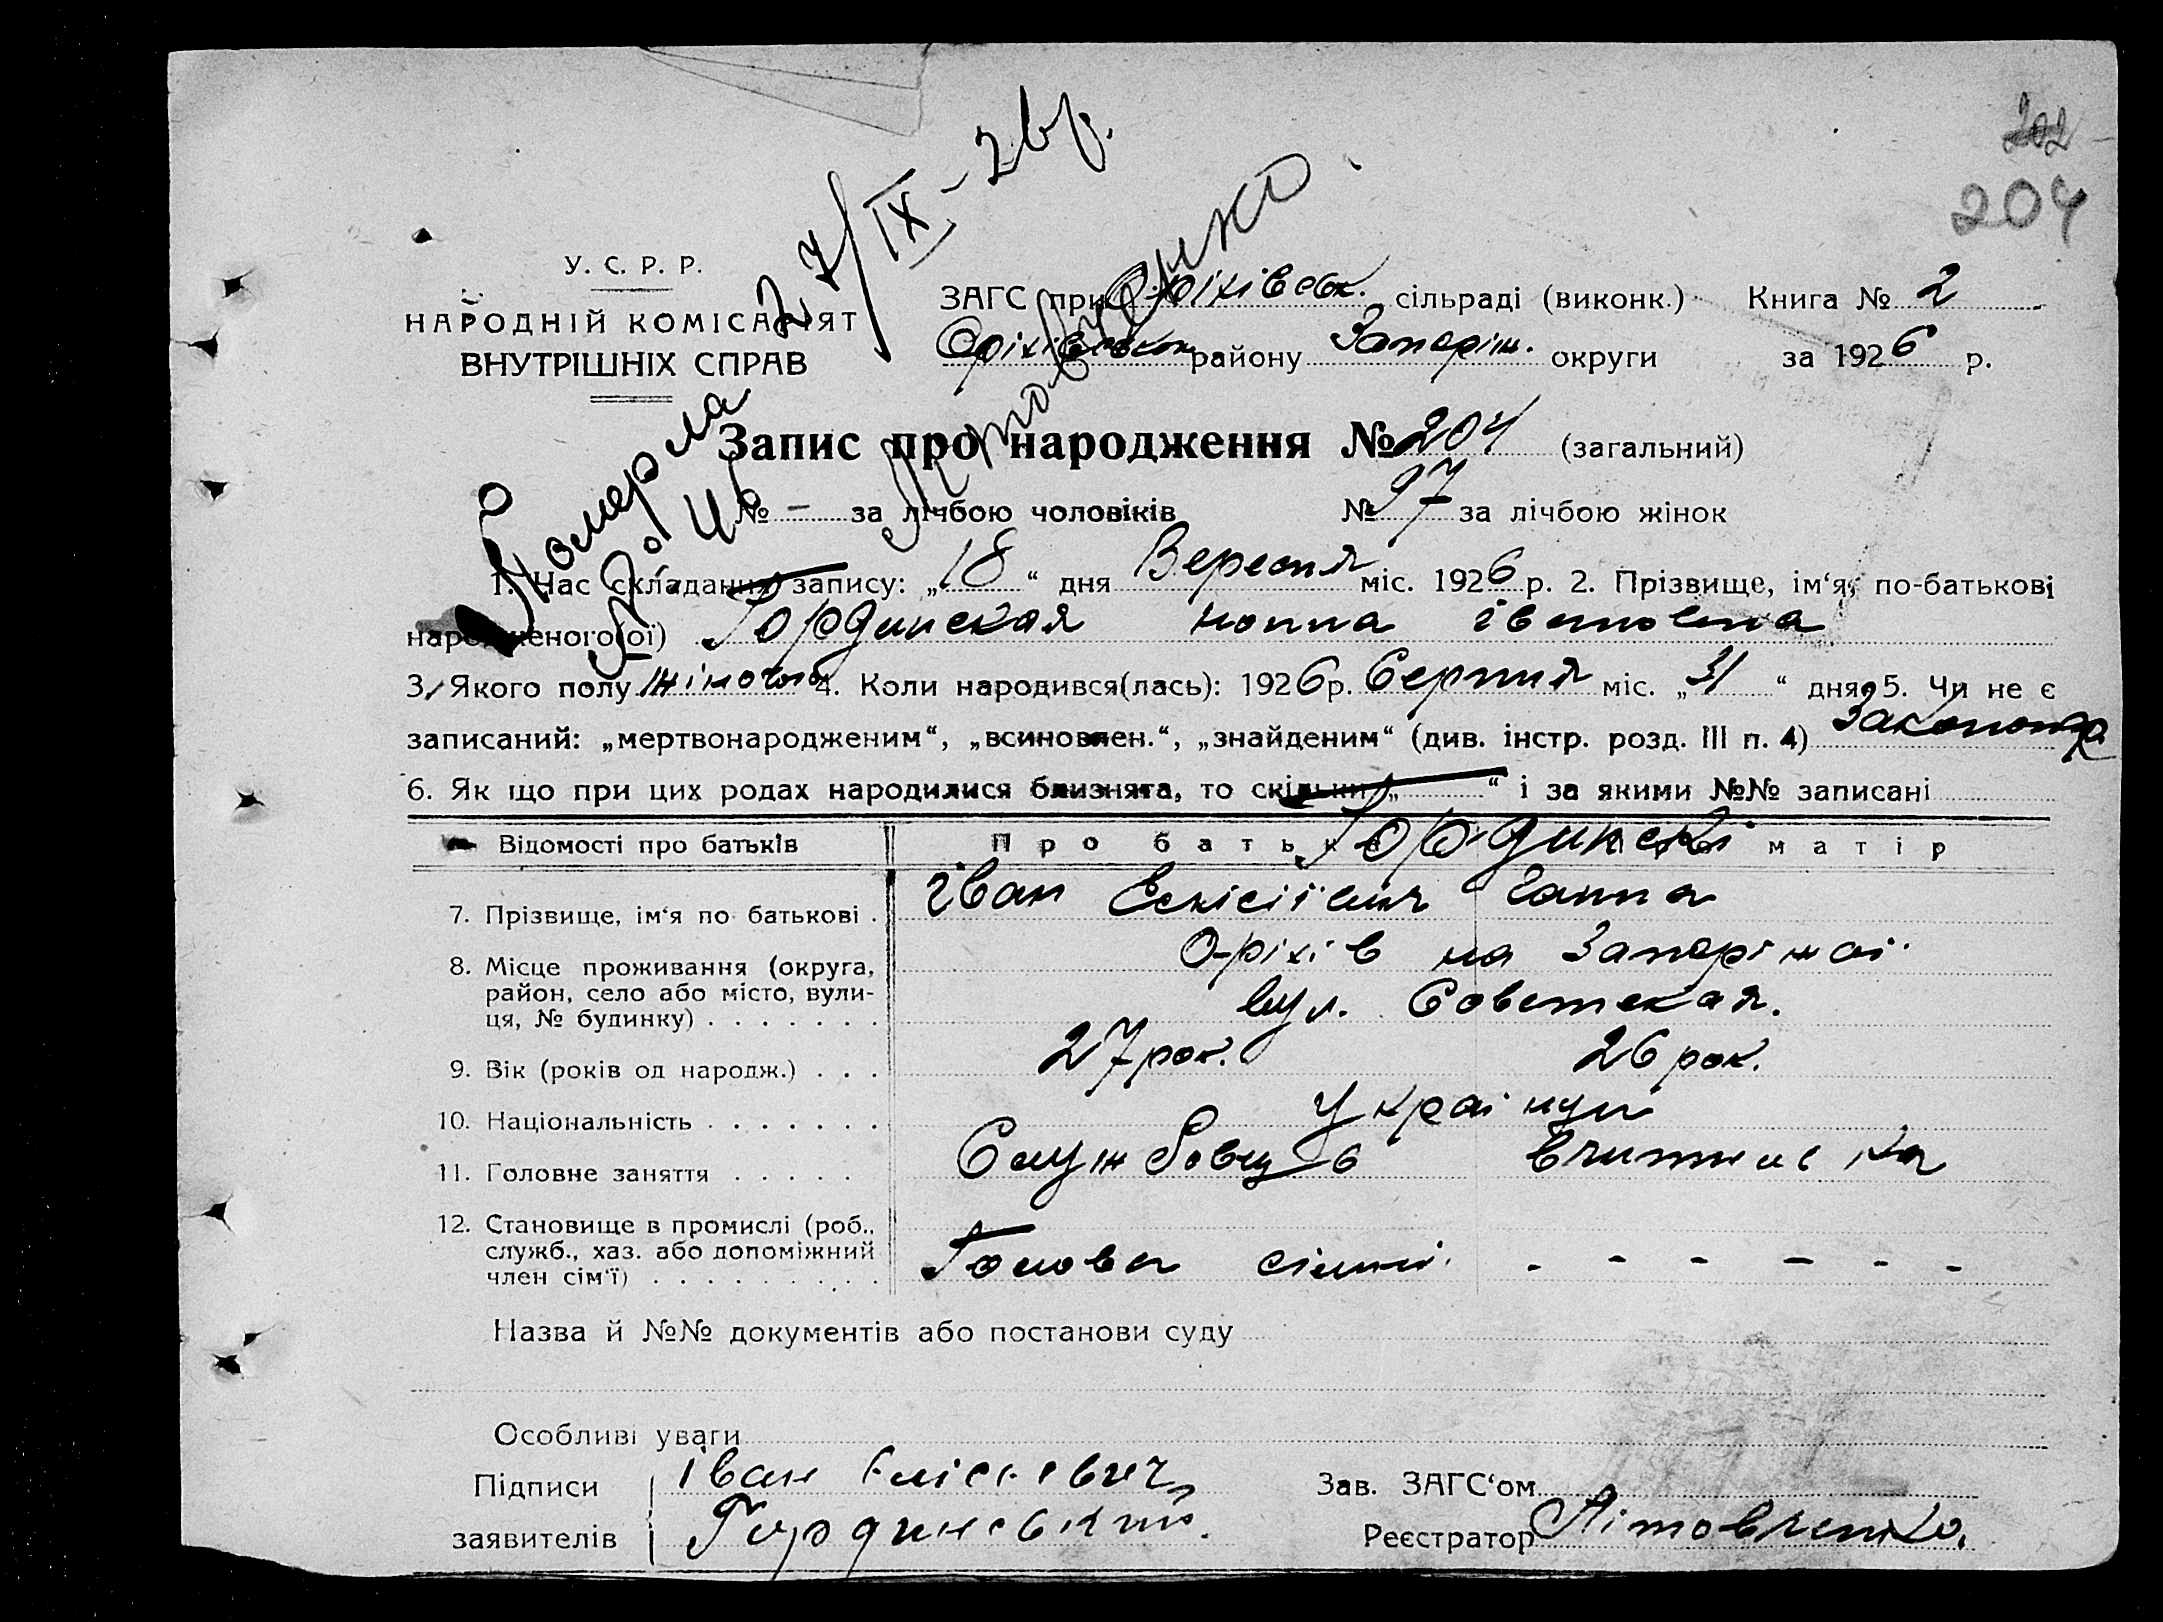 202
204
У. С. Р. Р.
НАРОДНІЙ КОМІСАРІЯТ
ВНУТРІШНІХ СПРАВ
Померла 27/IX-26р.
Літовченко
ЗАГС при Оріхівськ. сільраді (виконк.) Книга № 2
Оріхівськ району Запоріж. округи за 1926 р.
Запис про народження № 204 (загальний)
№ — за лічбою чоловіків № 97 за лічбою жінок
1. Час складання запису: „18“ дня Вересня міс. 1926 р. 2. Прізвище, ім‘я, по-батькові
народженого(ої) Гординская івановна
3. Якого полу жіночого 4. Коли народився(лась): 1926 р. Серпня міс. „31“ дня 5. Чи не є
записаний: „мертвонародженим“, „всиновлен.“, „знайденим“ (див. інстр. розд. III п. 4)
6. Як що при цих родах народилися близнята, то скільки „—“ і за якими №№ записані
Відомості про батьків Про батька Про матір
Гординскі
7. Прізвище, ім‘я по батькові . Іван Ганна
8. Місце проживання (округа, Оріхів на Запоріжжі
район, село або місто, вули-
ця, № будинку) . . . . . . . вул. Советская.
9. Вік (років од народж.) . . . 27 рок. 26 рок.
10. Національність . . . . . . . Українци
11. Головне заняття . . . . . Службовець вчителька
12. Становище в промислі (роб.,
служб., хаз. або допоміжний Голова сімьї. - - - - - -
член сім‘ї) . . . . . . . . .
Назва й №№ документів або постанови суду
Особливі уваги
Підписи Іван Зав. ЗАГС‘ом
заявителів Гординський. Реєстратор Літовченко.